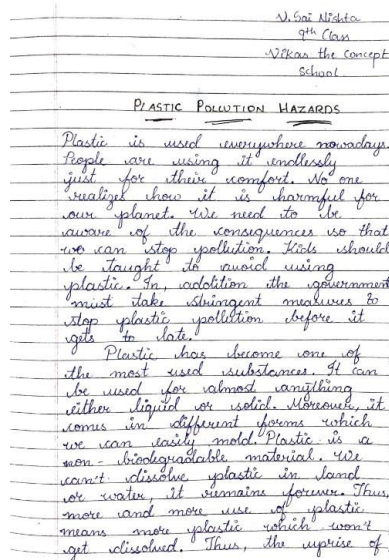 V. Sai Nishta
9th Class
Vikas the Concept
School
PLASTIC POLLUTION HAZARDS
Plastic is used everywhere nowadays.
People are using it endlessly
just for their comfort. No one
realizes how it is harmful for
our planet. We need to be
aware of the consequences so that
we can stop pollution. Kids should
be taught to avoid using
plastic. In, addition the government
must take stringent measures to
stop plastic pollution before it
gets to late.
Plastic has become one of
the most used substances. It can
be used for almost anything
either liquid or solid. Moreover, it
comes in different forms which
we can easily mold. Plastic is a
non-biodegradable material. We
can't dissolve plastic in land
or water, it remains forever. Thus,
more and more use of plastic
means more plastic which won't
get dissolved. Thus, the uprise of